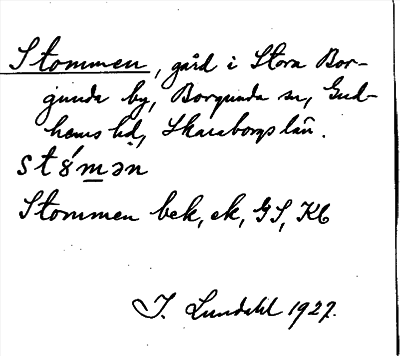 Stommen, gård i Stora Bor-
gunda by, Borgunda sn, Gud-
hems hd, Skaraborgs län.
st8́mən
Stommen bek, ek, GS, Kb
J. Lundahl 1927.